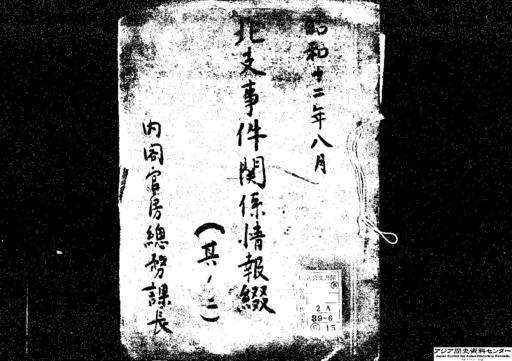 昭和十二年八月
北支事件関係情報綴
（其ノ二）
内閣官房總務課長
2A
39-6
15
アジア歴史資料センター
Japan Center for Asian Historical Records